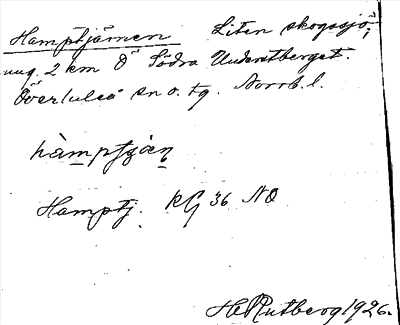 Hamptjärnen Liten skogssjö,
ung. 2 km Ö Södra Understberget.
Överluleå sn o. tg. Norrb. l.
hàmptjä̀n̥
Hamptj. RG 36 NO
H Rutberg 1926.